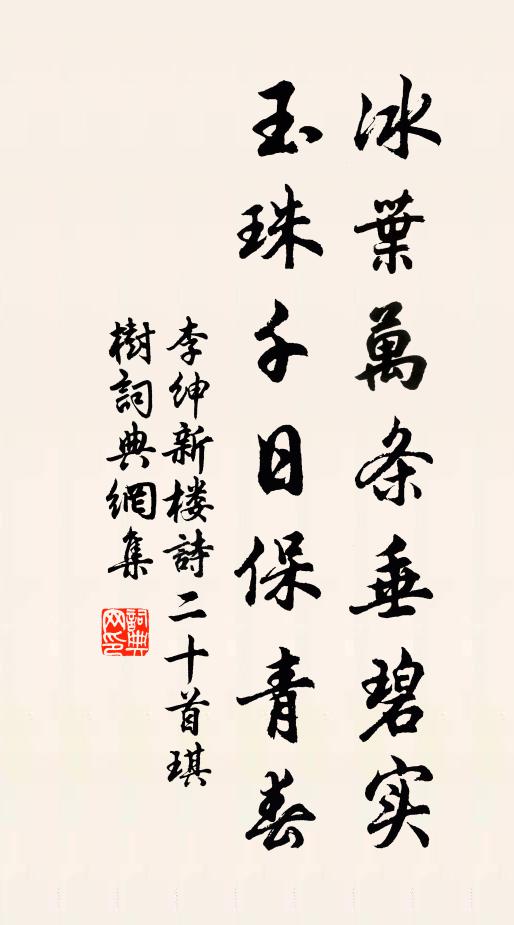 冰葉萬条垂碧实
玉珠千日保青春
李紳新楼詩二十首琪
樹詞典網集
詞典网印